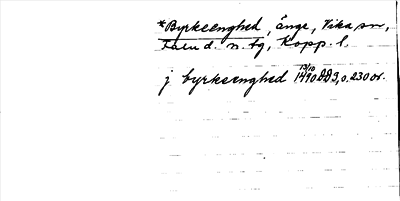 *Byrkeenghed, änge, Vika sn,
Falu d. n. tg, Kopp. l.
j byrkeenghed 13/10 1490 DD 3, o. 230 or.